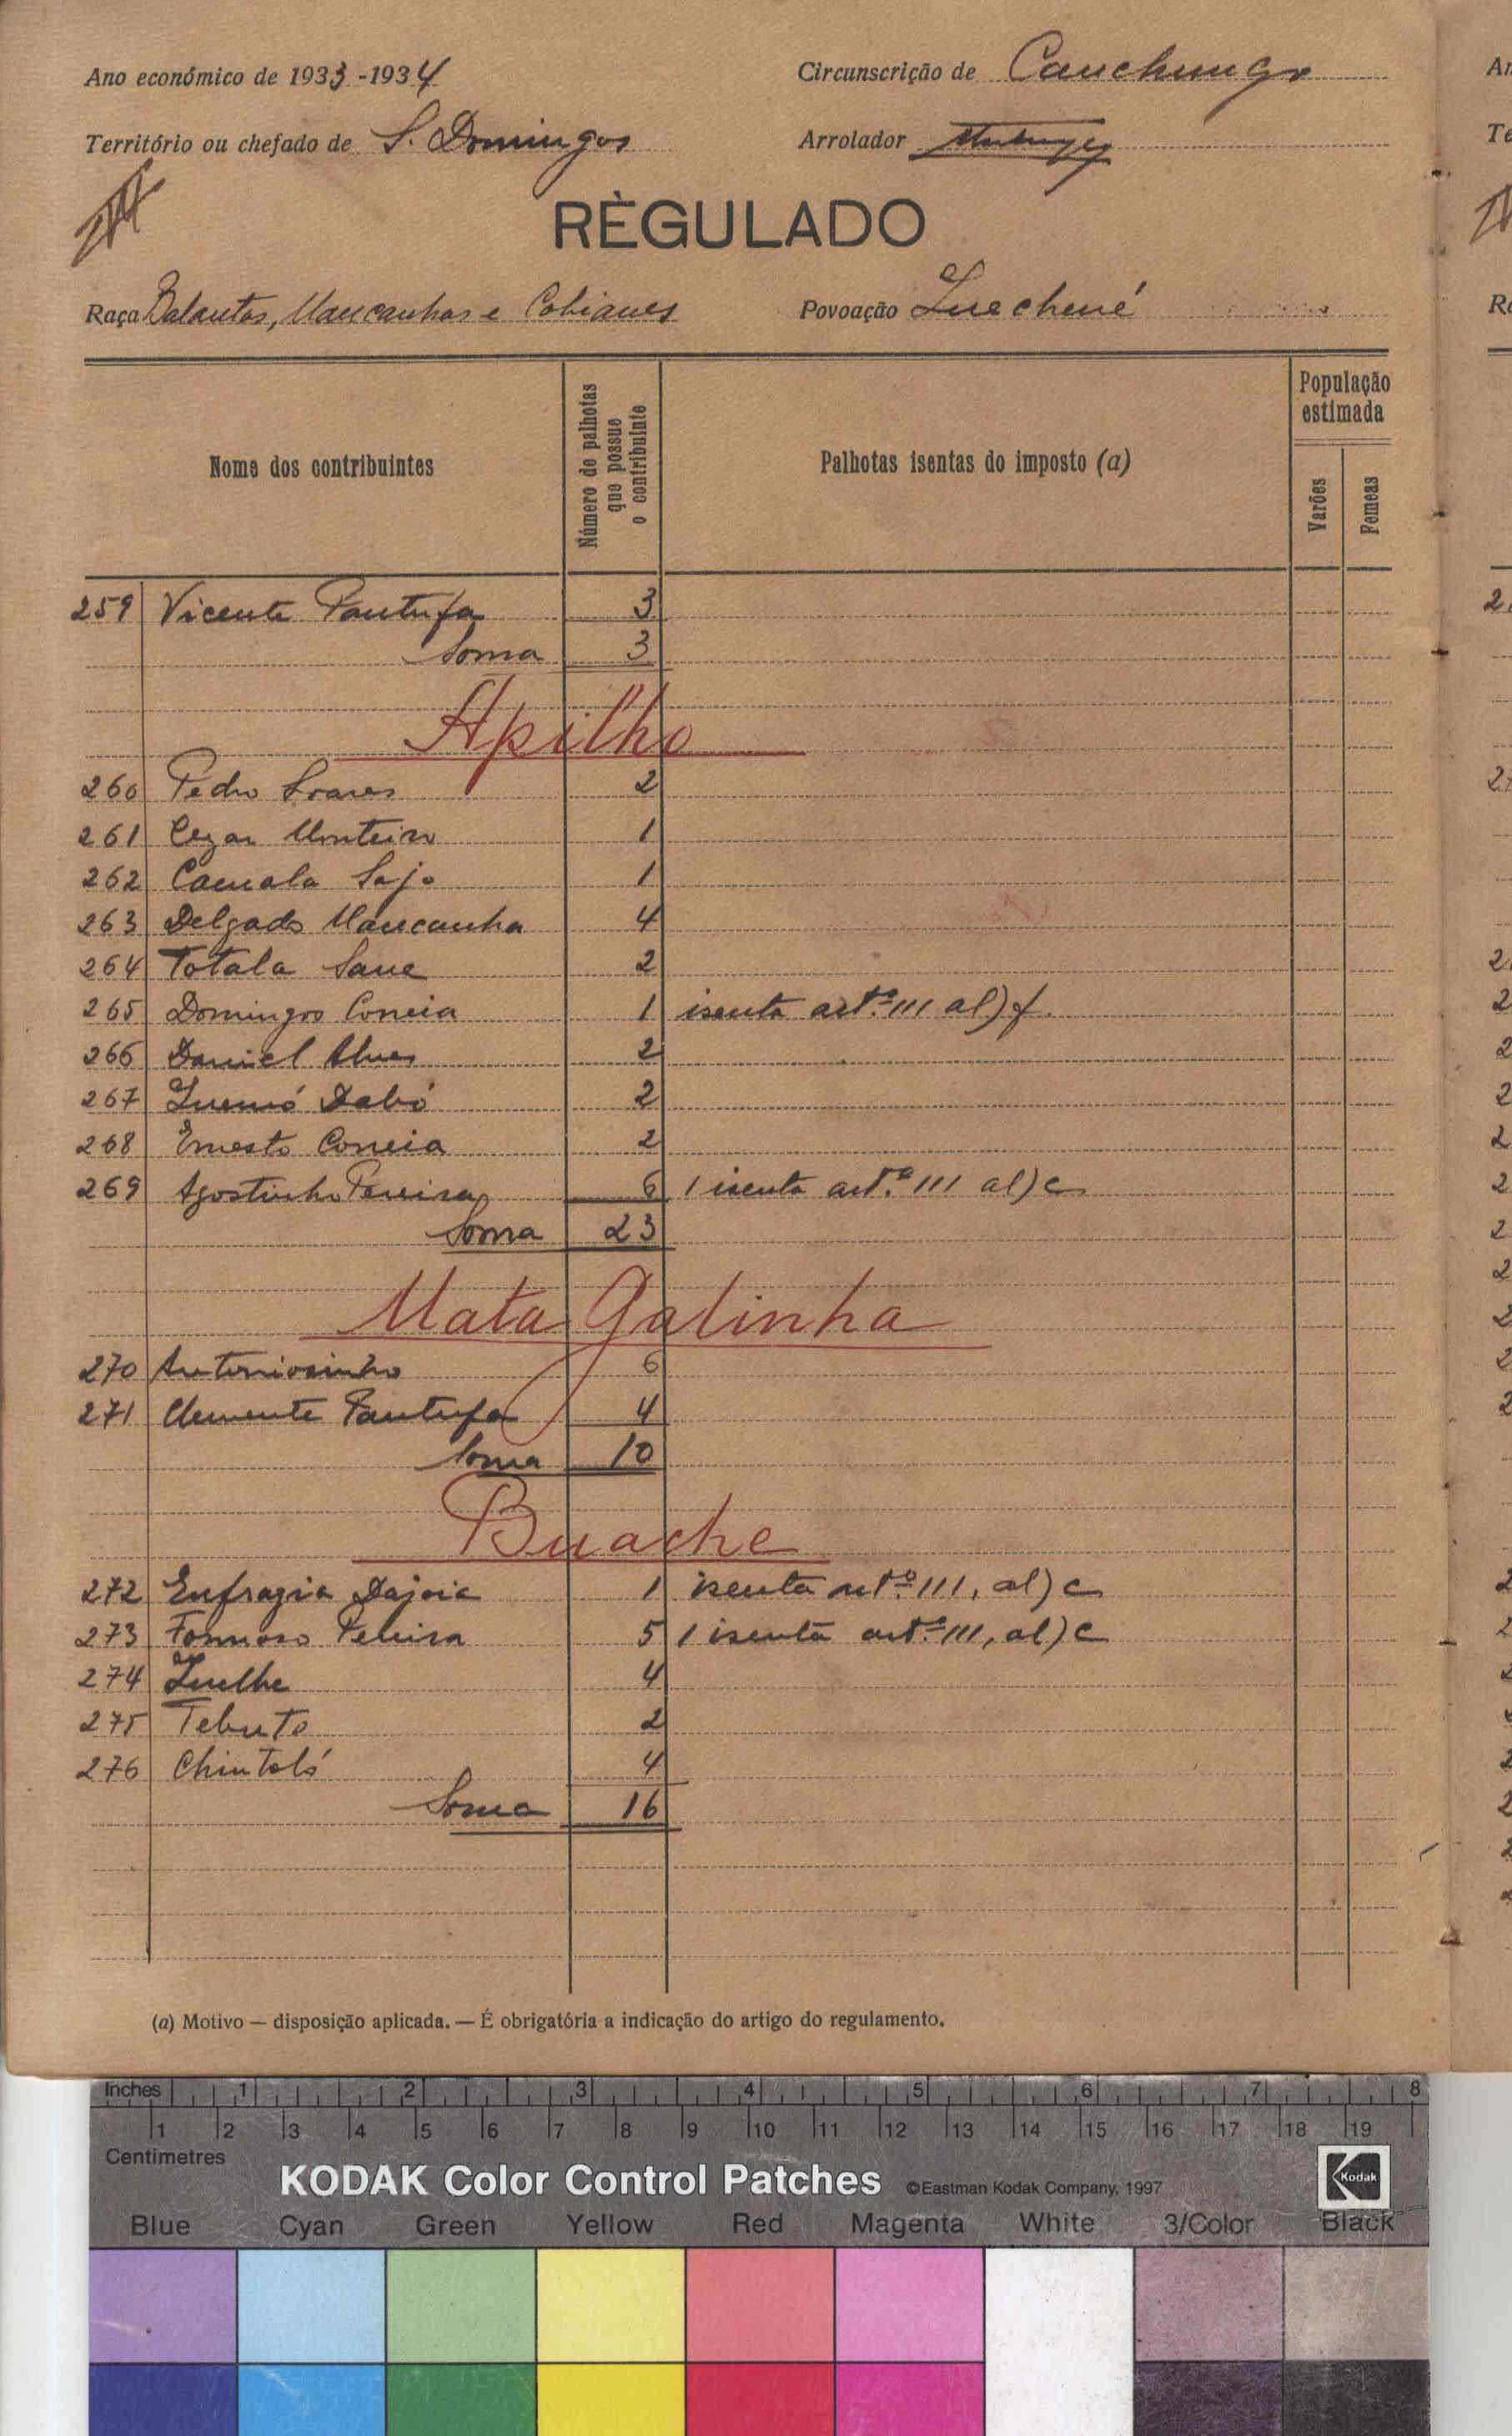 Ano económico de 1933-1934
Circunscrição de Cauchungo
Território ou chefado de S. Domingos
Arrolador
RÈGULADO
Raça Balantas, Mancanhas e Cobianes
Povoação Inechené
Nome dos contribuintes
Número de palhotas que possue o contribuinte
Palhotas isentas do imposto (a)
População estimada
Varões
Femeas
259 Vicente Pantufa 3
Soma 3
Apilho
260 Pedro Soares 2
261 Cezar Monteiro 1
262 Camala Sajo 1
263 Delgado Mancanha 4
264 Totala Sane 2
265 Domingos Correia 1 isenta art.º 111 al) f.
266 Daniel Alves 2
267 Dabó 2
268 Ernesto Correia 2
269 Agostinho Pereira 6 1 isenta art.º 111 al) c
Soma 23
Mata Galinha
270 Antoniosinho 6
271 Clemente Pantufa 4
Soma 10
Buache
272 Enfrazia Dajoia 1 isenta art.º 111, al) c
273 Formoso Pereira 5 1 isenta art.º 111, al) c
274 4
275 Tebuto 2
276 Chintoló 4
Soma 16
(a) Motivo — disposição aplicada. — É obrigatória a indicação do artigo do regulamento.
Inches 1 2 3 4 5 6 7 8
1 2 3 4 5 6 7 8 9 10 11 12 13 14 15 16 17 18 19
Centimetres
KODAK Color Control Patches ©Eastman Kodak Company, 1997 Kodak
Blue Cyan Green Yellow Red Magenta White 3/Color Black